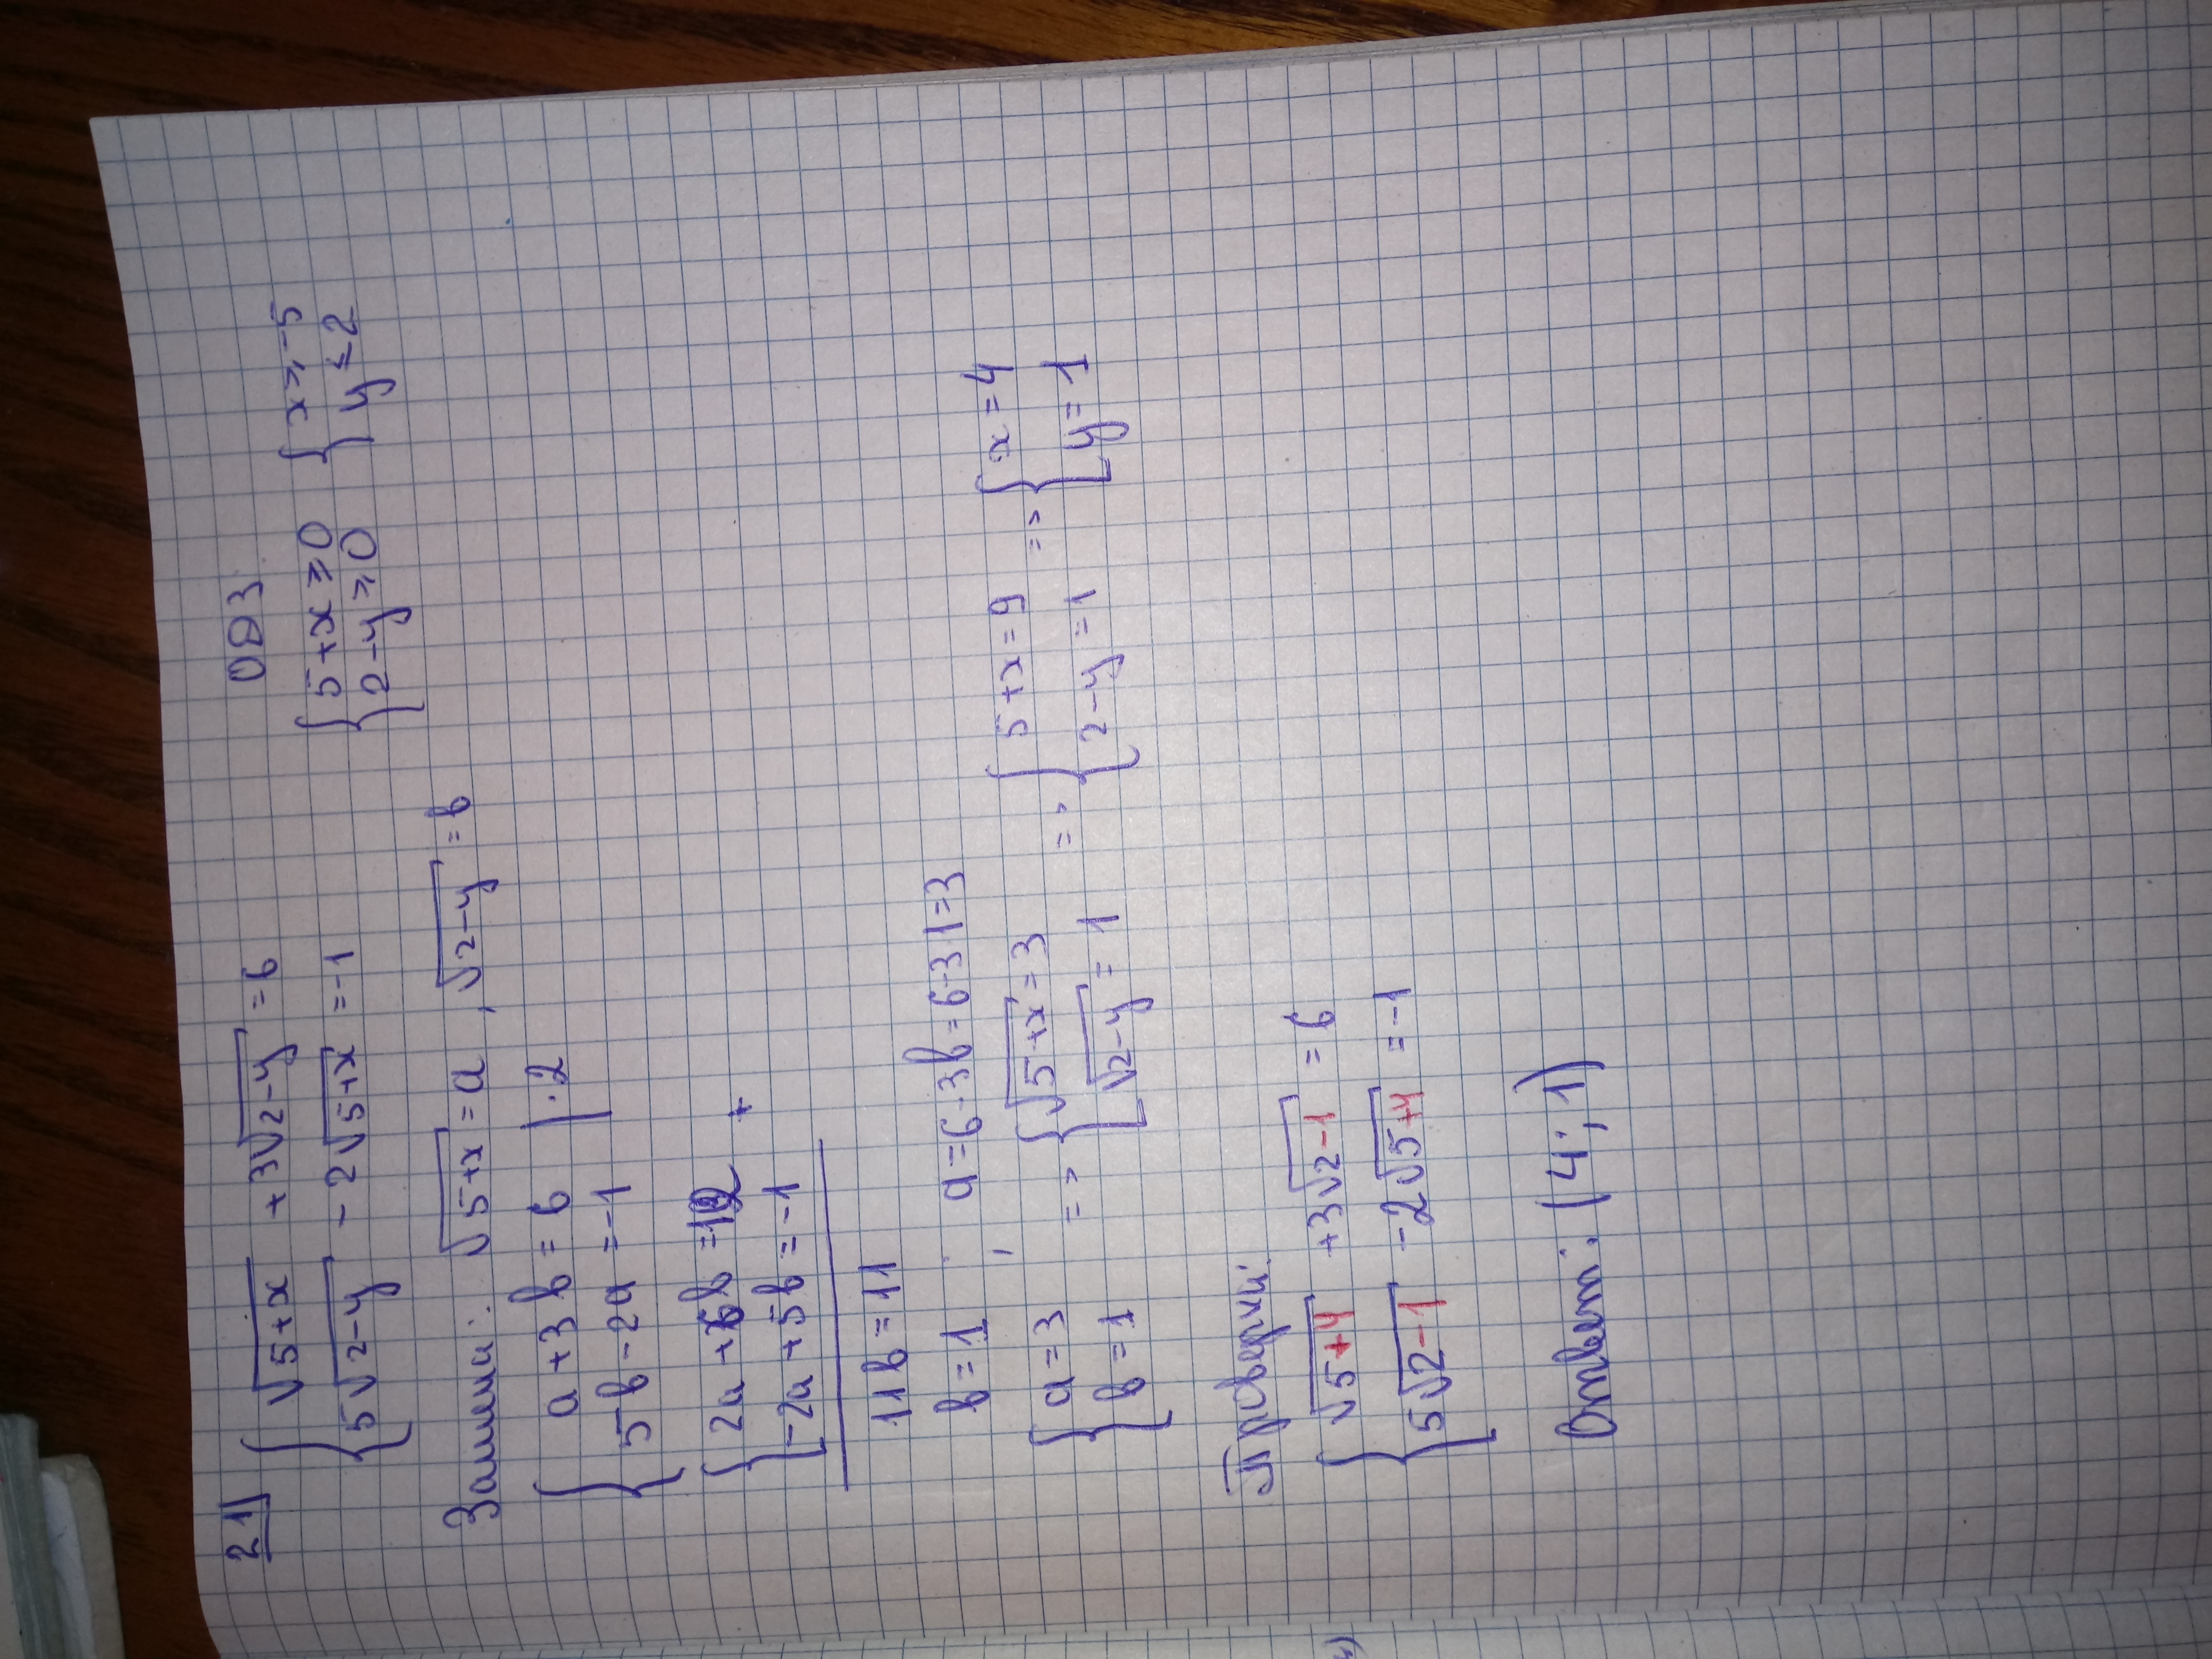 21) { √(5+x) +3√(2-y) =6
5√(2-y) - 2√(5+x) =-1
ОДЗ
{ 5+x⩾0 { x⩾-5
2-y⩾0 y≤2
Замена: √(5+x) =a , √(2-y) =b
{ a+3b=6 |·2
5b-2a=-1
{ 2a+6b=12 +
-2a+5b=-1
11b=11
b=1 , a=6-3b=6-3·1=3
{ a=3 => { √(5+x)=3 => { 5+x=9 => { x=4
b=1 √(2-y)=1 2-y=1 y=1
Проверка:
{ √(5+4) +3√(2-1) =6
5√(2-1) -2√(5+4) =-1
Ответ: (4;1)